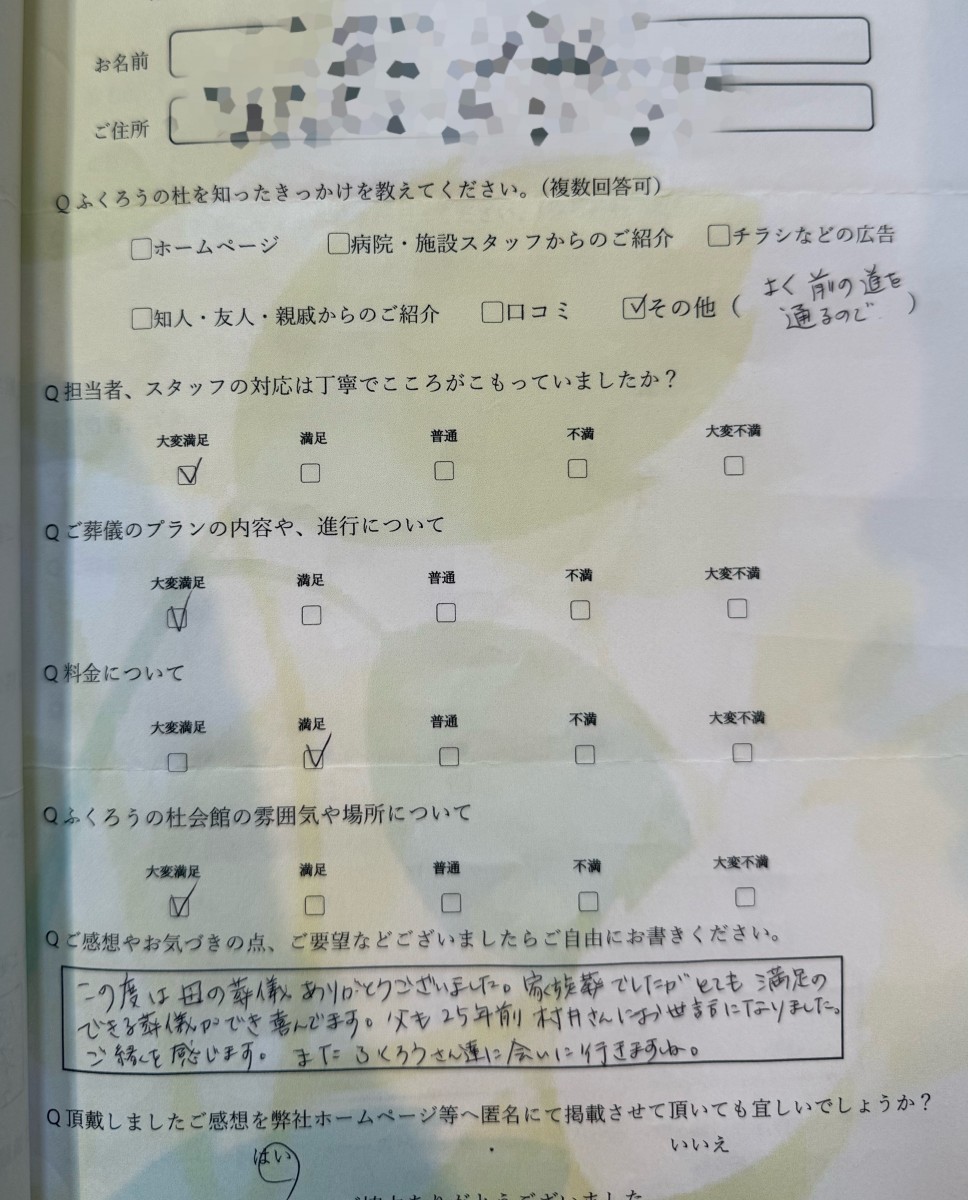 お名前
ご住所
Q ふくろうの杜を知ったきっかけを教えてください。（複数回答可）
□ホームページ □病院・施設スタッフからのご紹介 □チラシなどの広告
□知人・友人・親戚からのご紹介 □口コミ ☑その他（よく前の道を
通るので）
Q 担当者、スタッフの対応は丁寧でこころがこもっていましたか？
大変満足 満足 普通 不満 大変不満
☑ □ □ □ □
Q ご葬儀のプランの内容や、進行について
大変満足 満足 普通 不満 大変不満
☑ □ □ □ □
Q 料金について
大変満足 満足 普通 不満 大変不満
□ ☑ □ □ □
Q ふくろうの杜会館の雰囲気や場所について
大変満足 満足 普通 不満 大変不満
☑ □ □ □ □
Q ご感想やお気づきの点、ご要望などございましたらご自由にお書きください。
この度は母の葬儀ありがとうございました。家族葬でしたがとても満足の
できる葬儀ができ喜んでます。父も25年前村井さんにお世話になりました。
ご縁を感じます。またふくろうさん達に会いに行きますね。
Q 頂戴しましたご感想を弊社ホームページ等へ匿名にて掲載させて頂いても宜しいでしょうか？
はい ・ いいえ
ありがとうございました